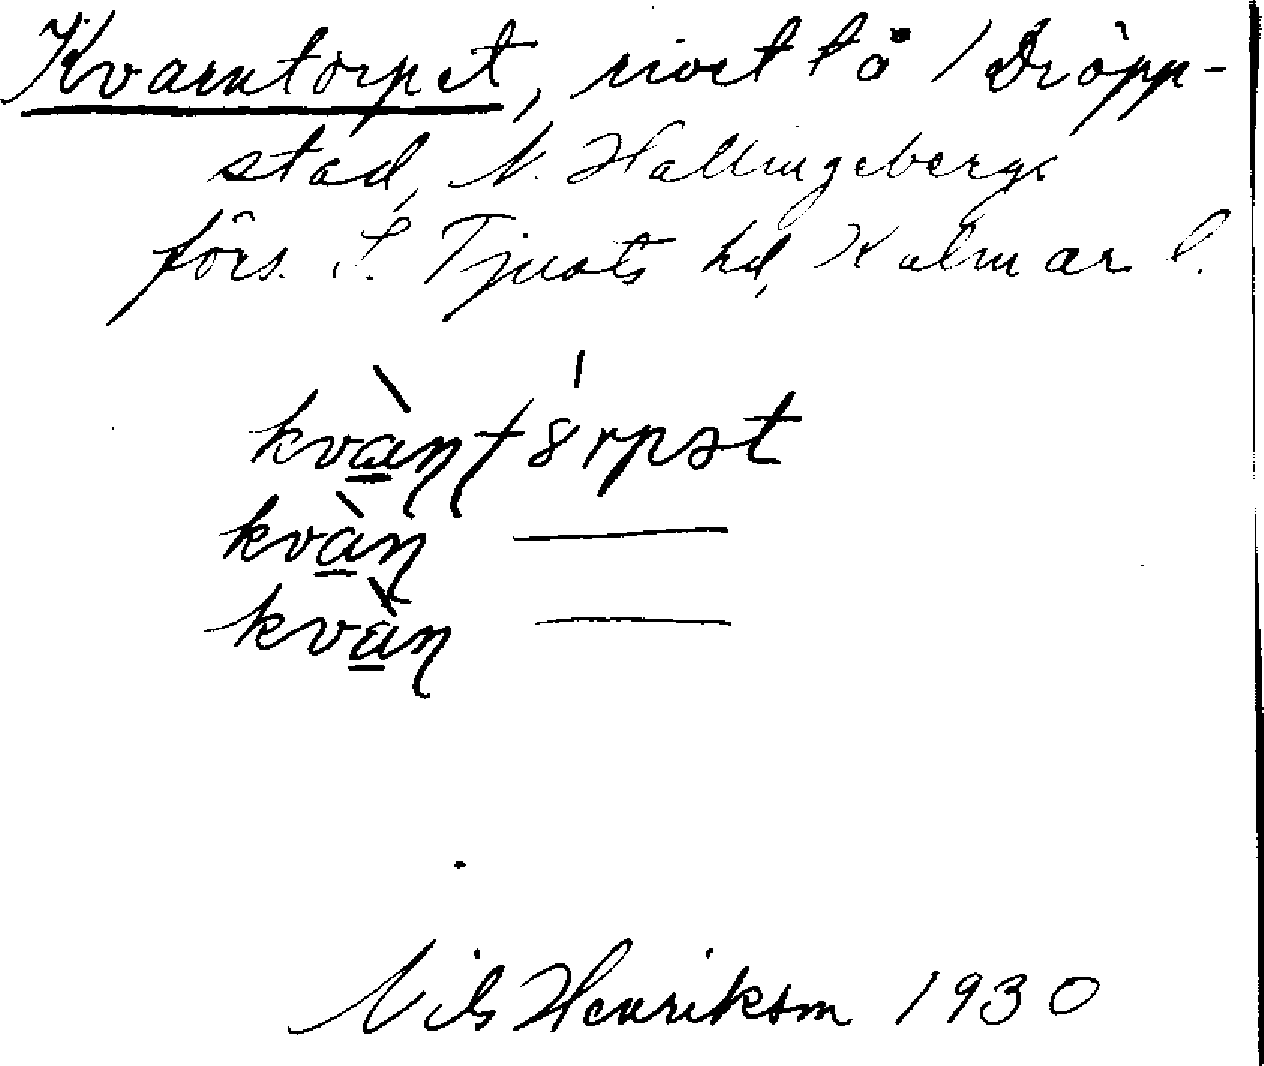 Kvarntorpet, rivet tå / Dröpp-
stad, N. Hallingebergs
förs. S. Tjusts hd, Kalmar l.
kvàṇṭ8rpət
kvàṇ ———
kvàṇ ———
Nils Henrikson 1930